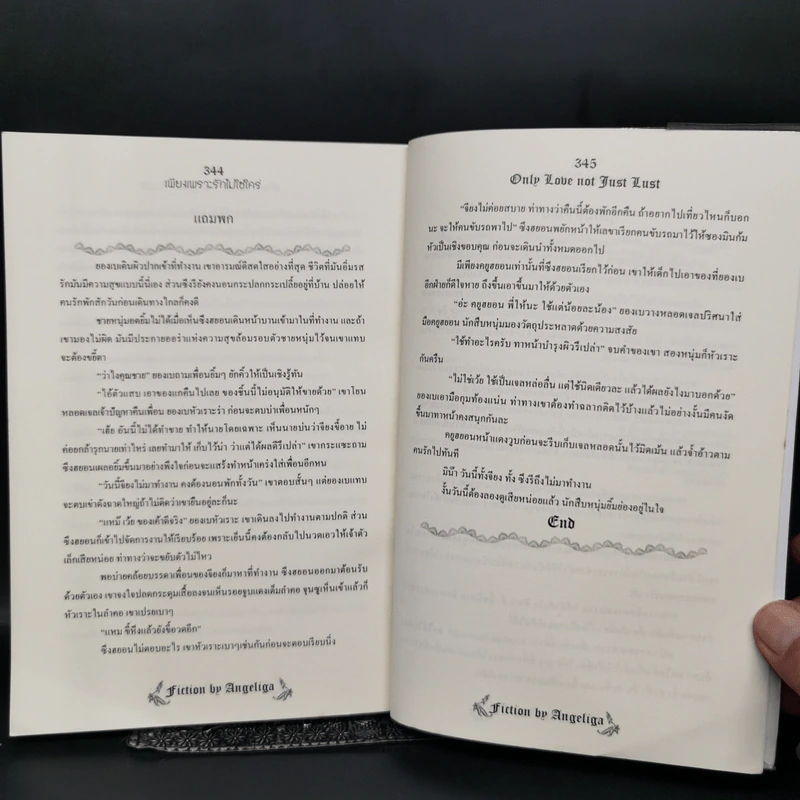 344
เพียงเพราะรักไม่ใช่ใคร่
แถมพก
ยองเบเดินผิวปากเข้าที่ทำงาน เขาอารมณ์ดีสดใสอย่างที่สุด ชีวิตที่มันอิ่มรส
รักมันมีความสุขแบบนี้นี่เอง ส่วนซึงรียังคงนอนกระปลกกระเปลี้ยอยู่ที่บ้าน ปล่อยให้
คนรักพักสักวันก่อนเดินทางไกลก็คงดี
ชายหนุ่มอดยิ้มไม่ได้เมื่อเห็นซึงฮยอนเดินหน้าบานเข้ามาในที่ทำงาน และถ้า
เขามองไม่ผิด มันมีประกายออร่าแห่งความสุขล้อมรอบตัวชายหนุ่มไว้จนเขาแทบ
จะต้องขยี้ตา
“ว่าไงคุณชาย” ยองเบถามเพื่อนยิ้มๆ ยักคิ้วให้เป็นเชิงรู้ทัน
“ไอ้ตัวแสบ เอาของแกคืนไปเลย ของชิ้นนี้ไม่อนุมัติให้ขายด้วย” เขาโยน
หลอดเจลเจ้าปัญหาคืนเพื่อน ยองเบหัวเราะร่า ก่อนจะตบบ่าเพื่อนหนักๆ
“เฮ้ย อันนี้ไม่ได้ทำขาย ทำให้นายโดยเฉพาะ เห็นนายบ่นว่าจียงขี้อาย ไม่
ค่อยกล้ารุกนายเท่าไหร่ เลยทำมาให้ เก็บไว้น่า ว่าแต่ได้ผลดีรึเปล่า” เขากระแซะถาม
ซึงฮยอนเผลอยิ้มขึ้นมาอย่างพึงใจก่อนจะแสร้งทำหน้าเคร่งใส่เพื่อนอีกหน
“วันนี้จียงไม่มาทำงาน คงต้องนอนพักทั้งวัน” เขาตอบสั้นๆ แต่ยองเบแทบ
จะตบเข่าดังฉาดใหญ่ถ้าไม่ติดว่าเขายืนอยู่ละก็นะ
“แหม๊ เว้ย ของเค้าดีจริง” ยองเบหัวเราะ เขาเดินลงไปทำงานตามปกติ ส่วน
ซึงฮยอนก็เข้าไปจัดการงานให้เรียบร้อย เพราะเย็นนี้คงต้องกลับไปนวดเอวให้เจ้าตัว
เล็กเสียหน่อย ท่าทางว่าจะขยับตัวไม่ไหว
พอบ่ายคล้อยบรรดาเพื่อนของจียงก็มาหาที่ทำงาน ซึงฮยอนออกมาต้อนรับ
ด้วยตัวเอง เขาจงใจปลดกระดุมเสื้อลงจนเห็นรอยจูบแดงเต็มลำคอ จุนซูเห็นเข้าแล้วก็
หัวเราะในลำคอ เขาเปรยเบาๆ
“แหม ขี้หึงแล้วยังขี้อวดอีก”
ซึงฮยอนไม่ตอบอะไร เขาหัวเราะเบาๆเช่นกันก่อนจะตอบเรียบนิ่ง
Fiction by Angeliga
345
Only Love not Just Lust
“จียงไม่ค่อยสบาย ท่าทางว่าคืนนี้ต้องพักอีกคืน ถ้าอยากไปเที่ยวไหนก็บอก
นะ จะให้คนขับรถพาไป” ซึงฮยอนพยักหน้าให้เลขาเรียกคนขับรถมาไว้ให้ซองมินก้ม
หัวเป็นเชิงขอบคุณ ก่อนจะเดินนำทั้งหมดออกไป
มีเพียงคยูฮยอนเท่านั้นที่ซึงฮยอนเรียกไว้ก่อน เขาให้เด็กไปเอาของที่ยองเบ
อีกฝ่ายก็ดีใจหาย ถึงขึ้นเอาขึ้นมาให้ด้วยตัวเอง
“อ่ะ คยูฮยอน พี่ให้นะ ใช้แต่น้อยละน้อง” ยองเบวางหลอดเจลปริศนาใส่
มือคยูฮยอน นักสืบหนุ่มมองวัตถุประหลาดด้วยความสงสัย
“ใช้ทำอะไรครับ ทาหน้าบำรุงผิวรึเปล่า” จบคำของเขา สองหนุ่มก็หัวเราะ
กันครืน
“ไม่ใช่เว้ย ใช้เป็นเจลหล่อลื่น แต่ใช้นิดเดียวละ แล้วได้ผลยังไงมาบอกด้วย”
ยองเบเอามือกุมท้องแน่น ท่าทางเขาต้องทำฉลากติดไว้บ้างแล้วไม่อย่างงั้นมีคนงัด
ขึ้นมาทาหน้าคงสนุกกันละ
คยูฮยอนหน้าแดงวูบก่อนจะรีบเก็บเจลหลอดนั้นไว้มิดเม้น แล้วจ้ำอ้าวตาม
คนรักไปทันที
มิน๊า วันนี้ทั้งจียง ทั้ง ซึงรีถึงไม่มาทำงาน
งั้นวันนี้ต้องลองดูเสียหน่อยแล้ว นักสืบหนุ่มยิ้มย่องอยู่ในใจ
End
Fiction by Angeliga